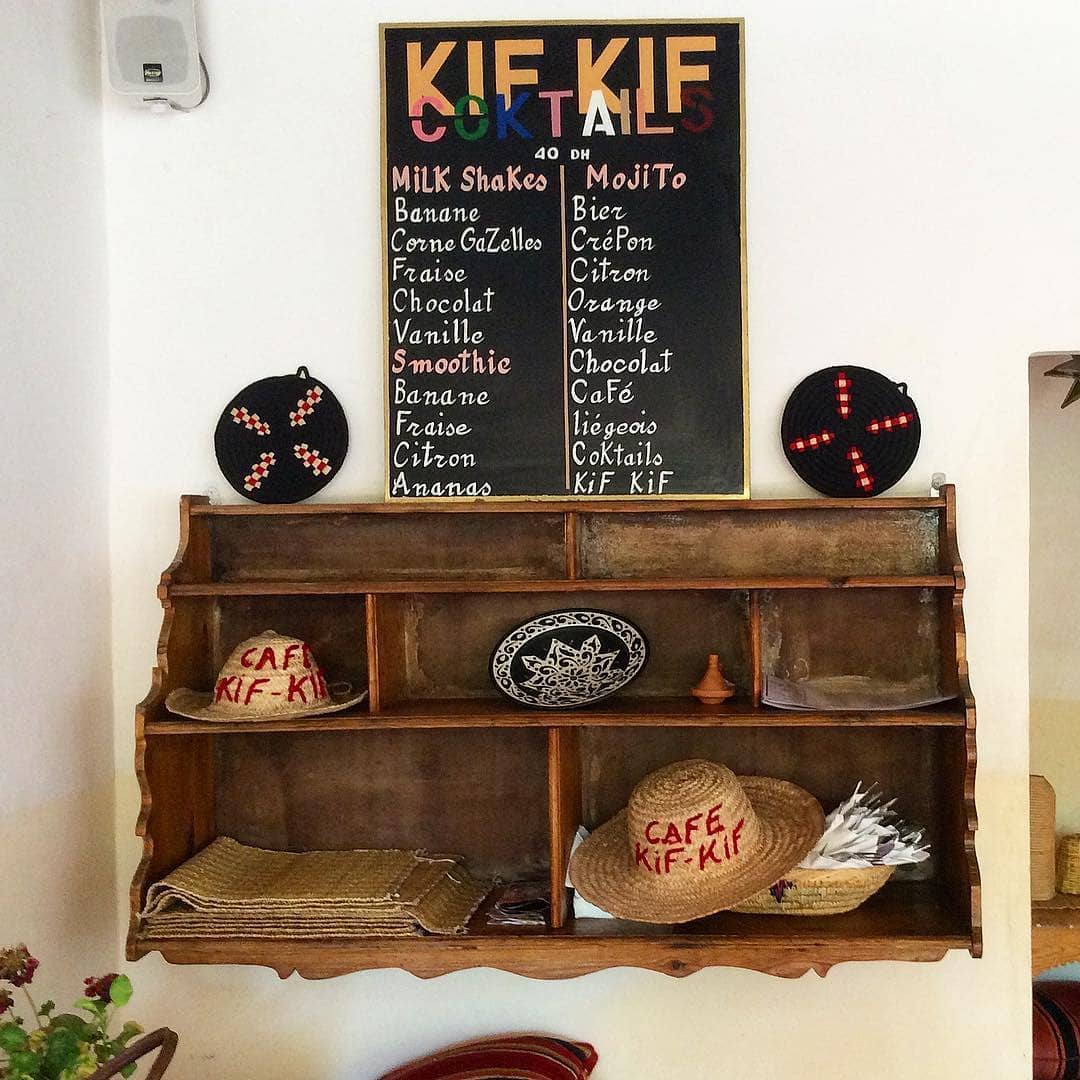 KIF KIF
COKTAILS
40 DH
MiLK ShaKes
Banane
Corne GaZelles
Fraise
Chocolat
Vanille
Smoothie
Banane
Fraise
Citron
Ananas
MojiTo
Bier
CréPon
Citron
Orange
Vanille
Chocolat
CaFé
liégeois
CoKtails
KiF KiF
CAFE
KiF-KiF
CAFE
KiF-KiF